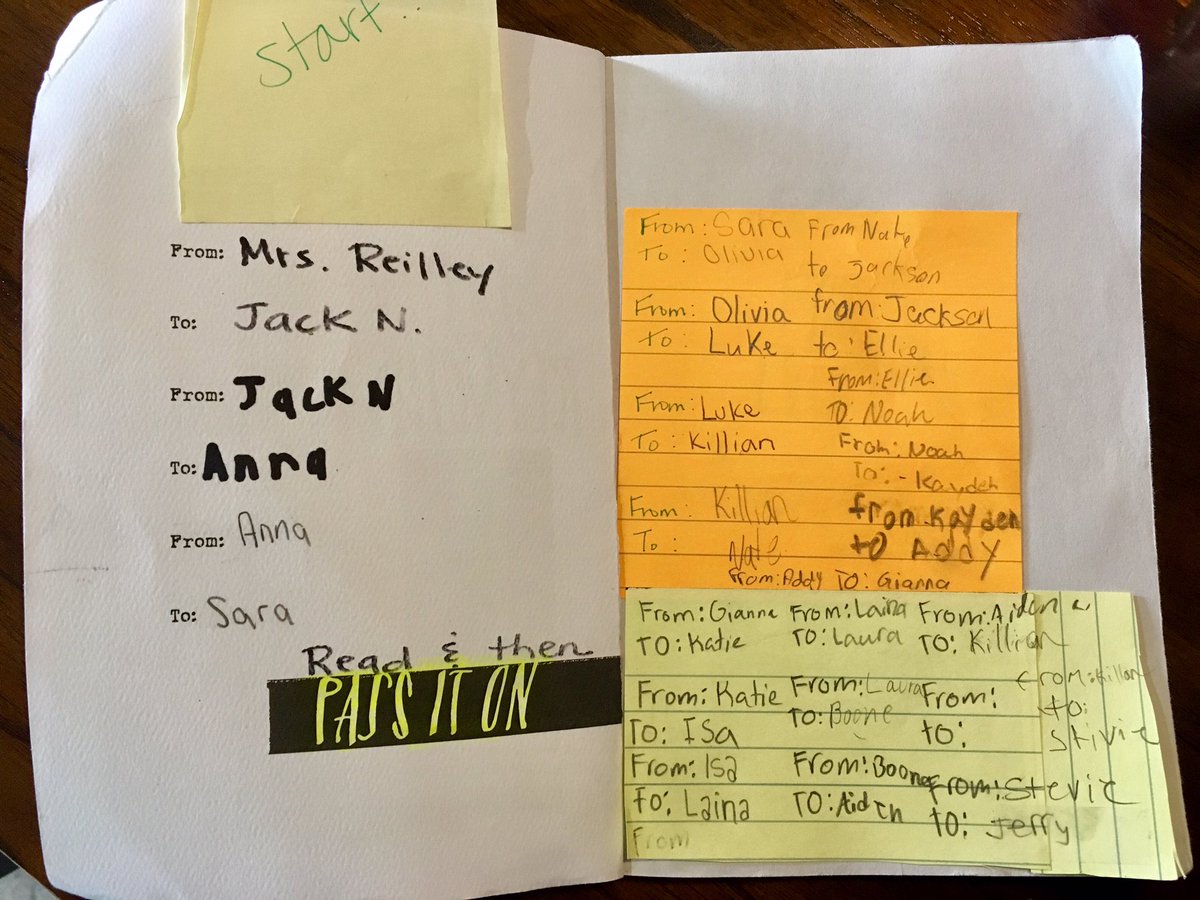 start
From: Mrs. Reilley
To: Jack N.
From: Jack N
To: Anna
From: Anna
To: Sara
Read & then
PASS IT ON
From: Sara
To: Olivia
From: Olivia
To: Luke
From: Luke
To: Killian
From: Killian
To: Nate
From Nate
to Jackson
from: Jackson
to: Ellie
From: Ellie
To: Noah
From: Noah
To: - Kayden
from Kayden
to Addy
From: Addy To: Gianna
From: Gianna
To: Katie
From: Katie
To: Isa
From: Isa
To: Laina
From
From: Laina
To: Laura
From: Laura
To: Boone
From: Boone
To: Aiden
From: Aiden
To: Killian
From:
to:
from: Killian
to:
Stivie
From: Stevie
to: Jeffy